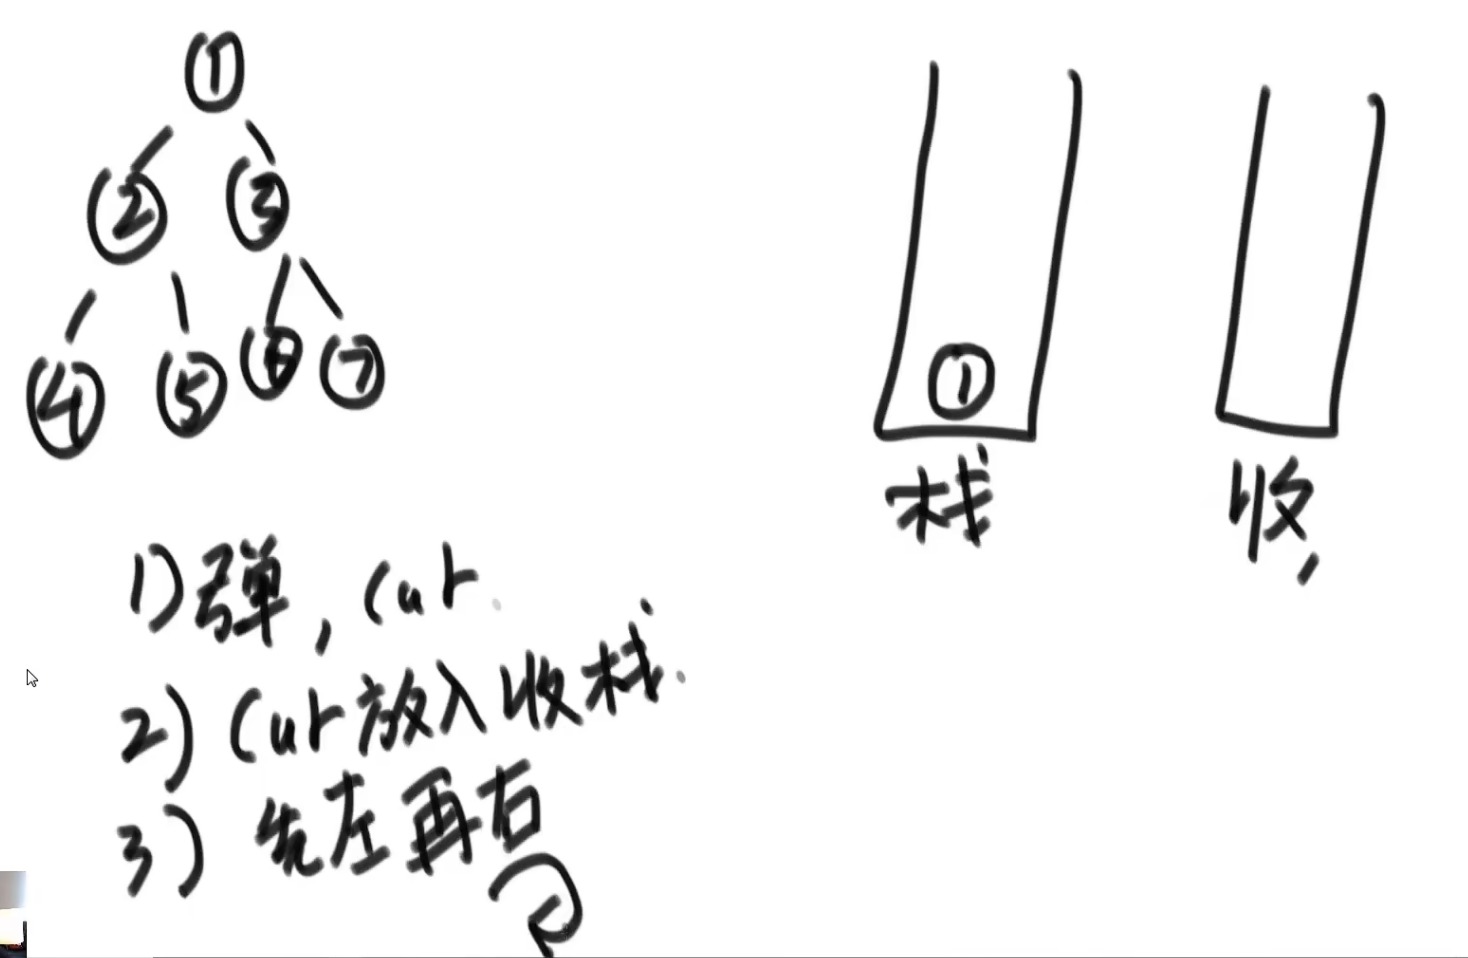 ①
② ③
④ ⑤ ⑥ ⑦
①
栈 收,
1) 弹, cur.
2) cur放入收栈.
3) 先左再右